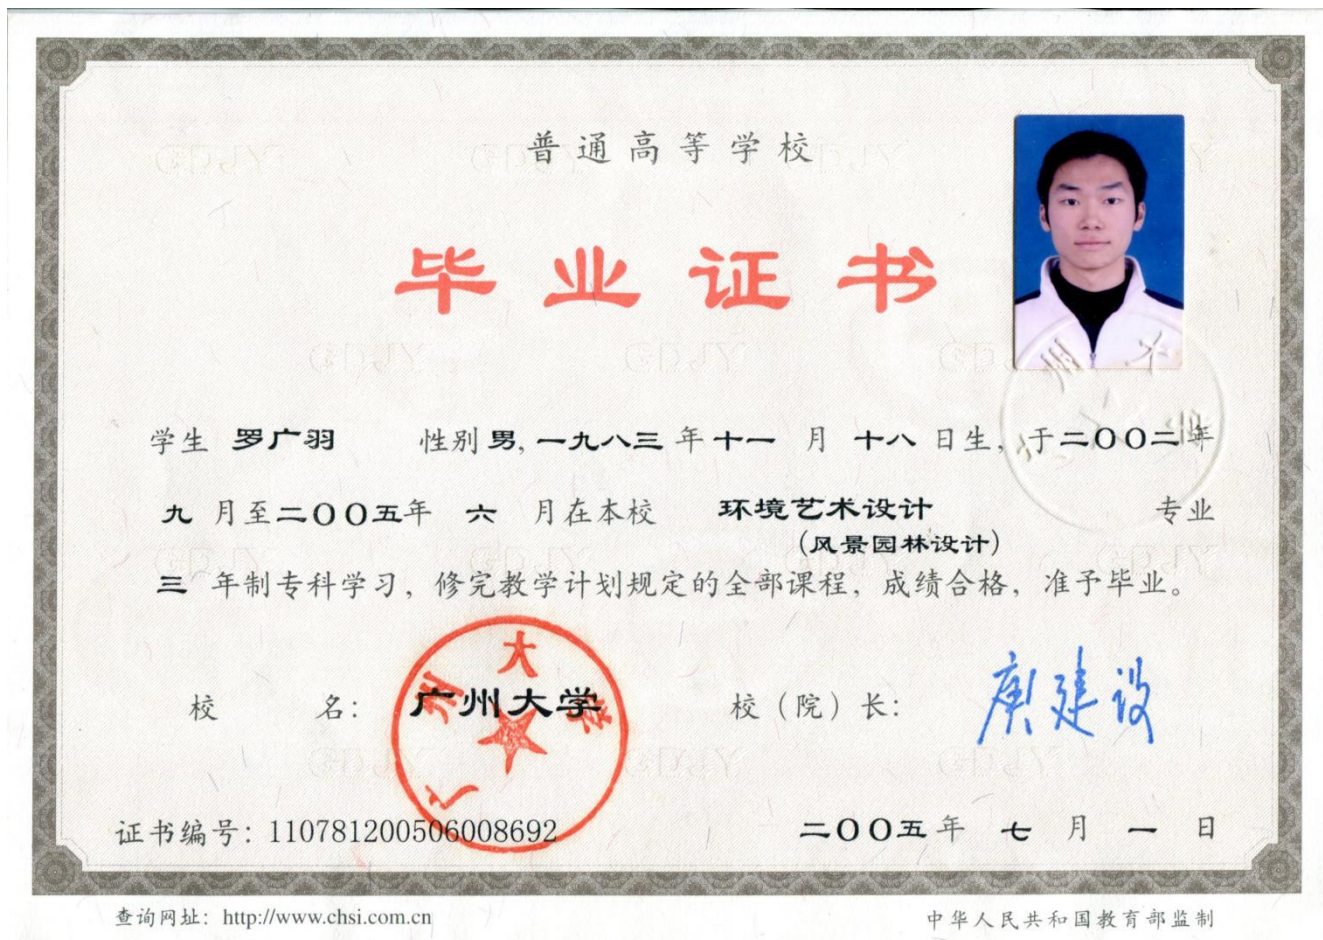 普通高等学校
毕业证书
学生 罗广羽 性别男，一九八三年十一月十八日生，于二〇〇二年
九月至二〇〇五年六月在本校 环境艺术设计 专业
（风景园林设计）
三年制专科学习，修完教学计划规定的全部课程，成绩合格，准予毕业。
广州大学
校名：广州大学 校（院）长：庾建设
证书编号：110781200506008692 二〇〇五年七月一日
查询网址：http://www.chsi.com.cn 中华人民共和国教育部监制